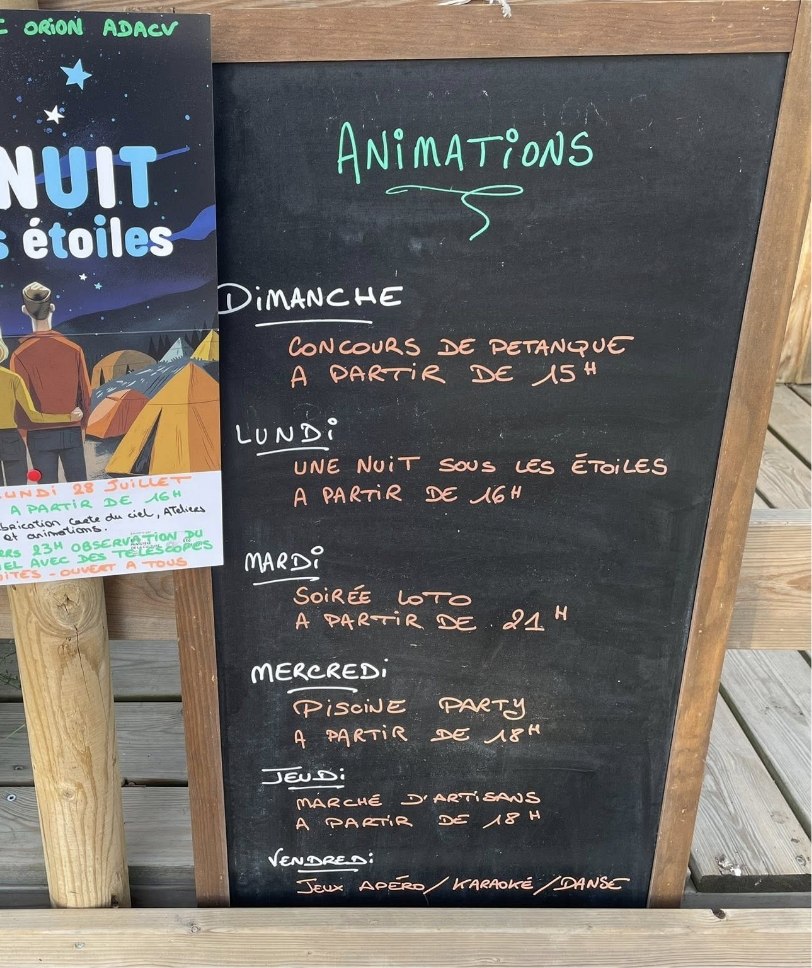 ORION ADACV
NUIT
étoiles
LUNDI 28 JUILLET
A PARTIR DE 16H
carte du ciel, Ateliers
et animations.
23H OBSERVATION DU
AVEC DES TELESCOPES
OUVERT A TOUS
ANIMATIONS
DIMANCHE
CONCOURS DE PETANQUE
A PARTIR DE 15H
LUNDI
UNE NUIT SOUS LES ÉTOILES
A PARTIR DE 16H
MARDI
SOIRÉE LOTO
A PARTIR DE 21H
MERCREDI
PISCINE PARTY
A PARTIR DE 18H
JEUDI
MARCHE D'ARTISANS
A PARTIR DE 18H
VENDREDI
JEUX APÉRO/KARAOKÉ/DANSE